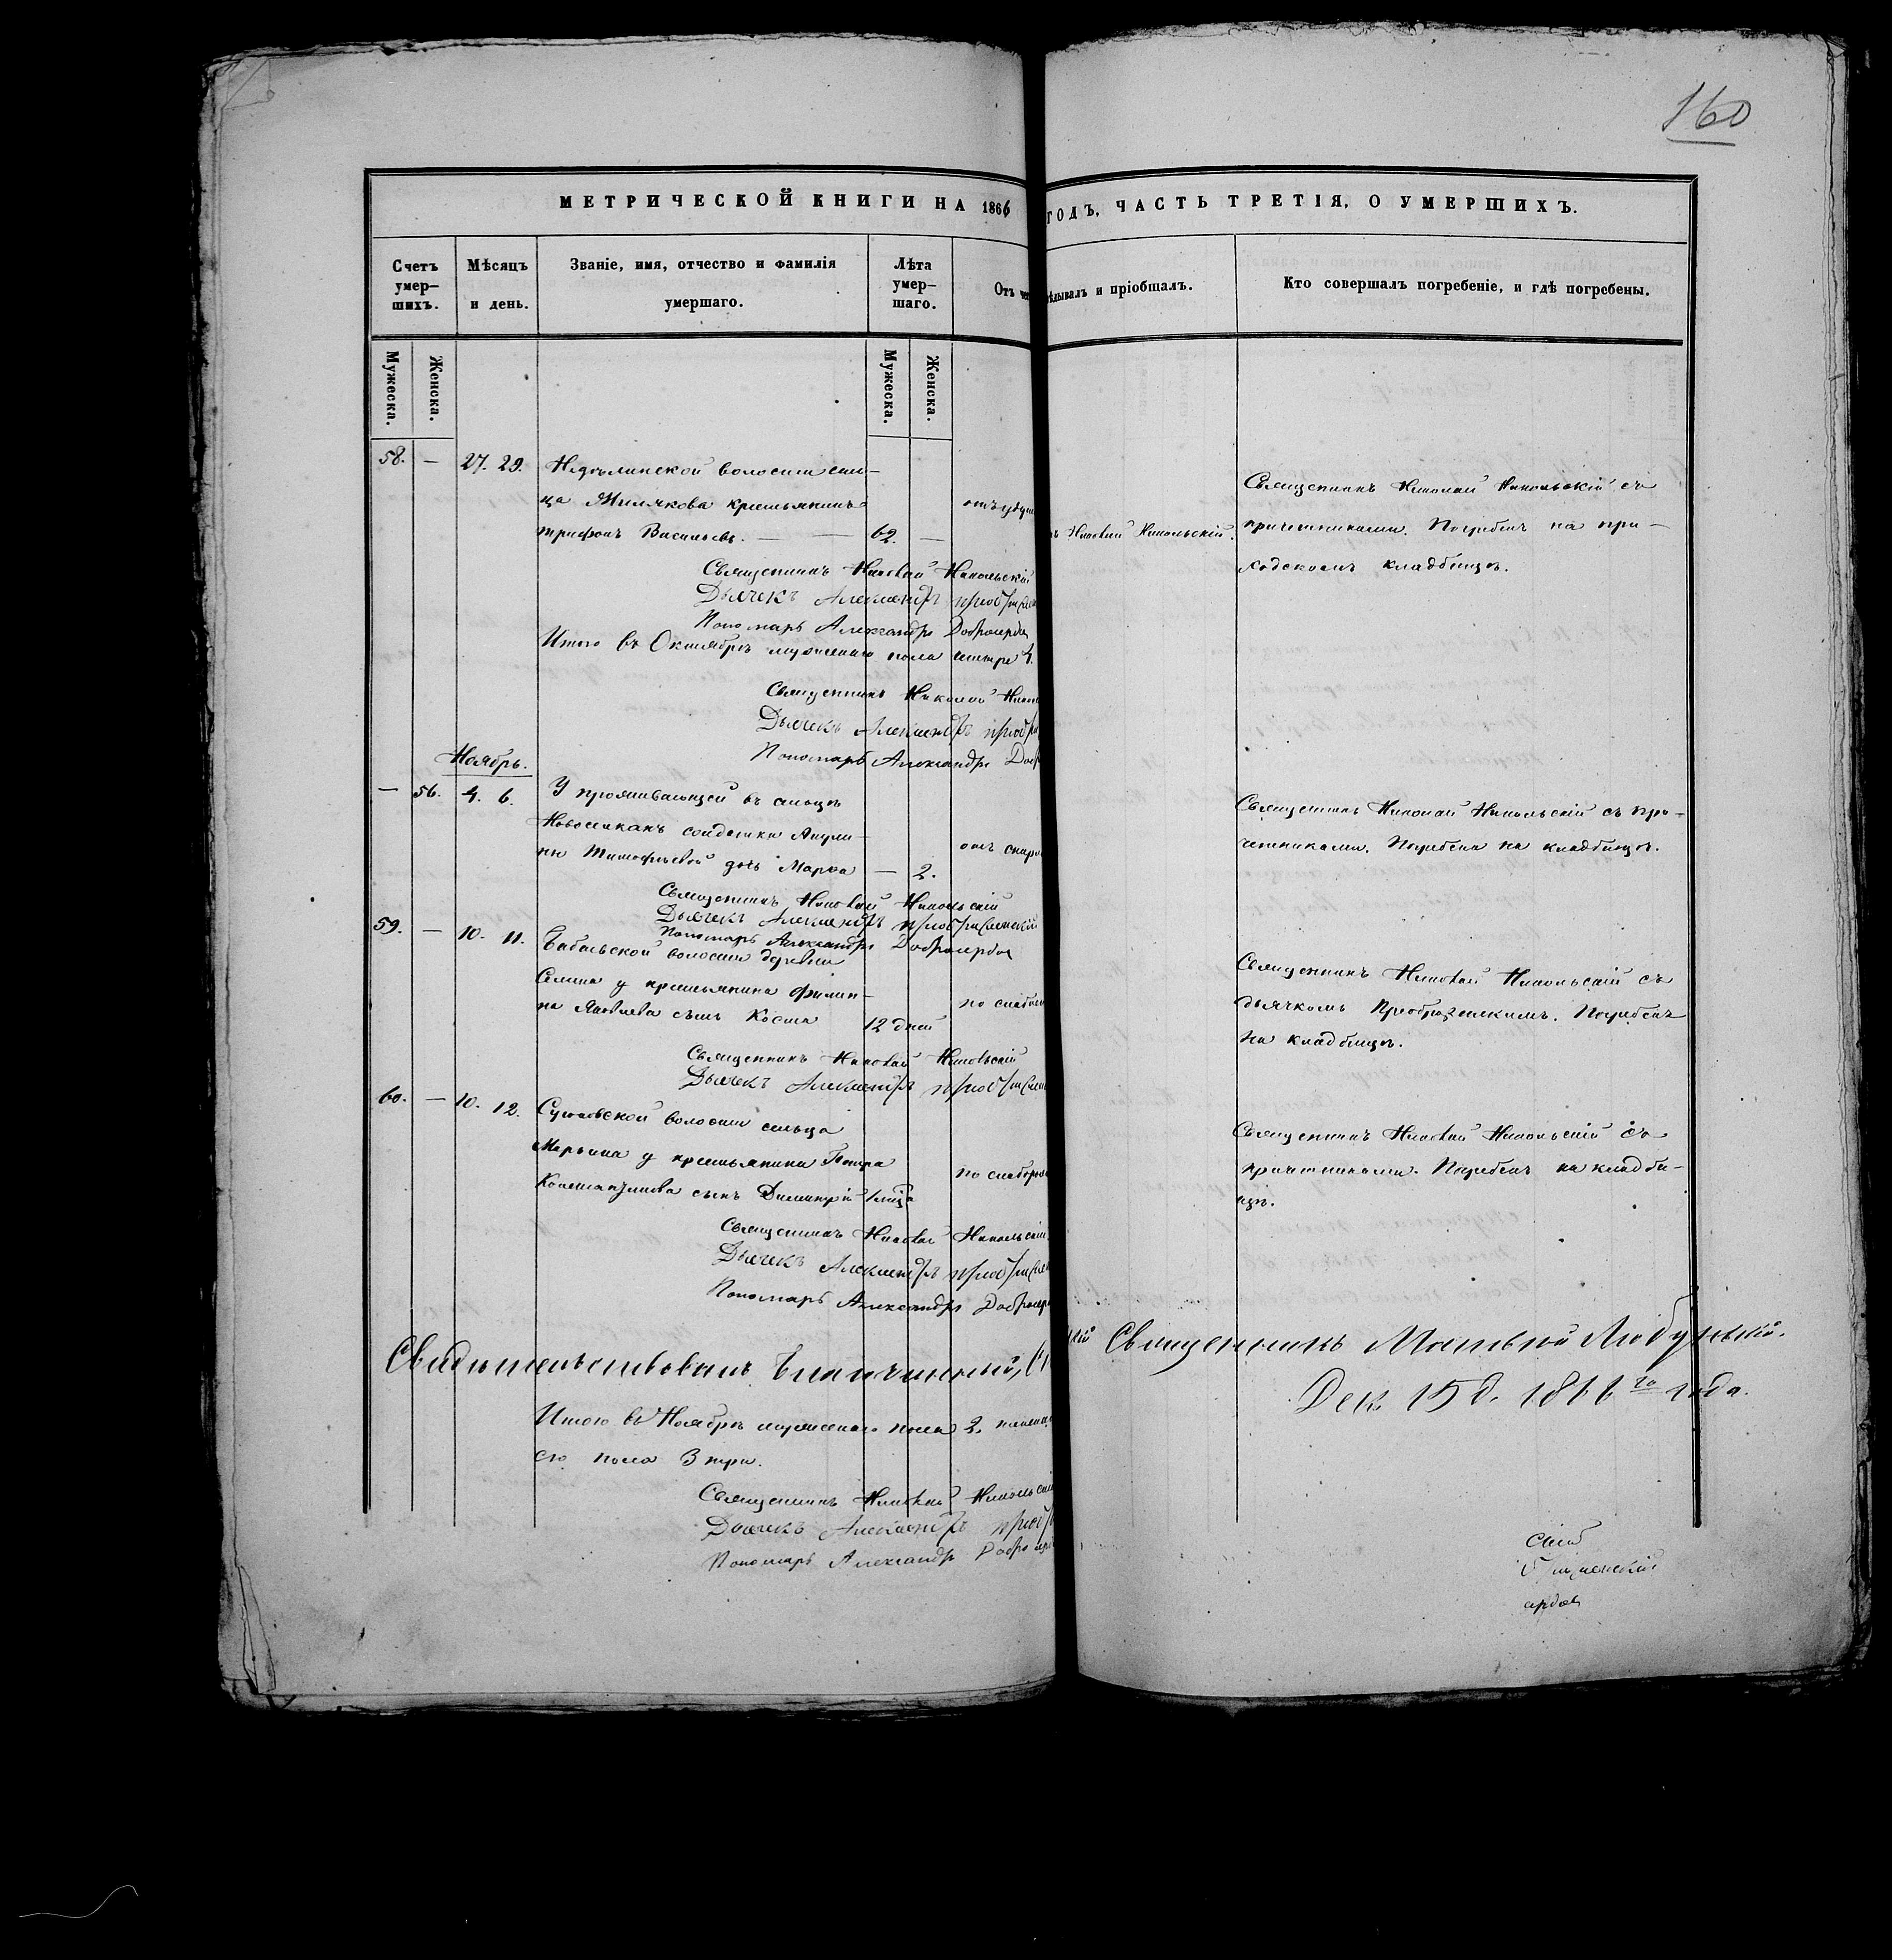 160
МЕТРИЧЕСКОЙ КНИГИ НА 1866 ГОДЪ, ЧАСТЬ ТРЕТІЯ, О УМЕРШИХЪ.
Счетъ умер–шихъ.
Мѣсяцъ и день.
Званіе, имя, отчество и фамилія умершаго.
Лѣта умер–шаго.
Отъ че
дывалъ и пріобщалъ.
Кто совершалъ погребеніе, и гдѣ погребены.
Мужеска. Женска.
Мужеска. Женска.
58. — 27. 29. волости сель–
ца крестьянинъ
Трифонъ Васильевъ. — — 62. —
Николай Никольскій.
Священникъ Николай Никольскій съ
причетниками. Погребенъ на при–
ходскомъ кладбищѣ.
Священникъ Николай Никольскій
Дьячекъ Александръ
Пономарь Александръ Добросердов
Итого въ Октябрѣ мужескаго пола четыре 4.
Священникъ Николай Никол
Дьячекъ Александръ
Пономарь Александръ Доб
Ноябрь.
— 56. 4. 6. У проживающей въ сельцѣ
солдатки Акули–
ны Тимофѣевой дочь Марѳа — 2.
Священникъ Николай Никольскій съ при–
четниками. Погребена на кладбищѣ.
Священникъ Николай Никольскій
Дьячекъ Александръ Преображенскій
Пономарь Александръ Добросердов
59. — 10. 11. Бабаевской волости деревни
Селина у крестьянина Филип–
па Яковлева сынъ Косма 12 дней
по слабос
Священникъ Николай Никольскій съ
дьячкомъ Преображенскимъ. Погребенъ
на кладбищѣ.
Священникъ Николай Никольскій
Дьячекъ Александръ
60. — 10. 12. волости сельца
Марьина у крестьянина Петра
Константинова сынъ Димитрій 1 года
по слабос
Священникъ Николай Никольскій съ
причетниками. Погребенъ на кладби–
щѣ.
Священникъ Николай Никольскій
Дьячекъ Александръ
Пономарь Александръ Добросер
Свидѣтельствовалъ Благочинный, Священникъ Матвѣй
Дек. 15 д. 1866 го года.
Итого въ Ноябрѣ мужескаго пола 2, женска
го пола 3 три.
Священникъ Николай Никольскій
Дьячекъ Александръ
Пономарь Александръ Добросер